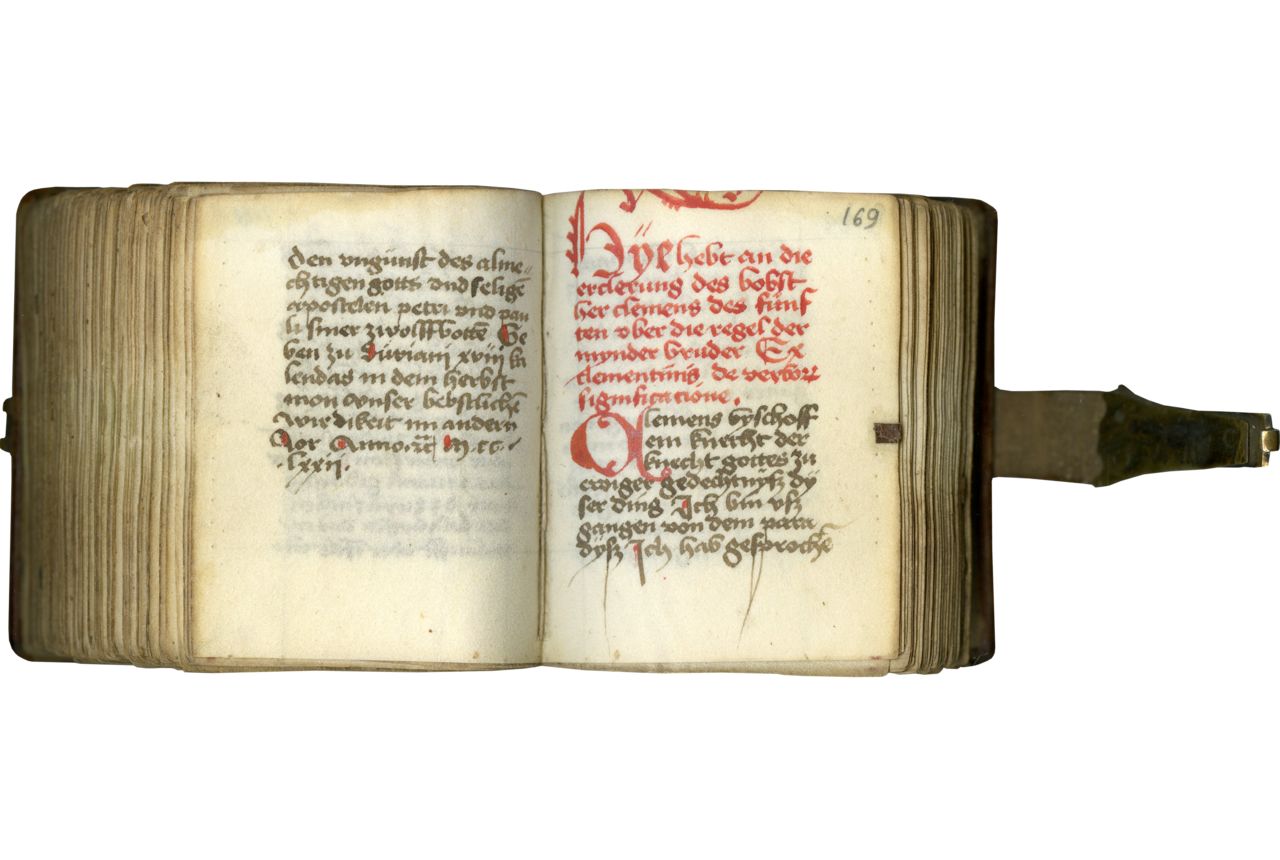 den vngünst des alme„
chtigen gotts vnd seligē
apostelen petri vnd pau
li siner zwolffbottē Ge
ben zu Suriani xviij ka
lendas in dem herbst
mon vnser bebstlichē
wirdikeit im andern
Jor Anno.rc̄ M.cc.
.lxxij.
169
Hÿe hebt an die
erclerung des bobst
her clemens des fünf
ten vber die regel der
mynder bruder Ex
clementinis de verbor̄
significatione.
Clemens byschoff
ein knecht der
knecht gottes zu
ewiger gedechtnÿsz dÿ
ser ding Ich bin vsz
gangen von dem para
dÿsz Ich hab gesprochē